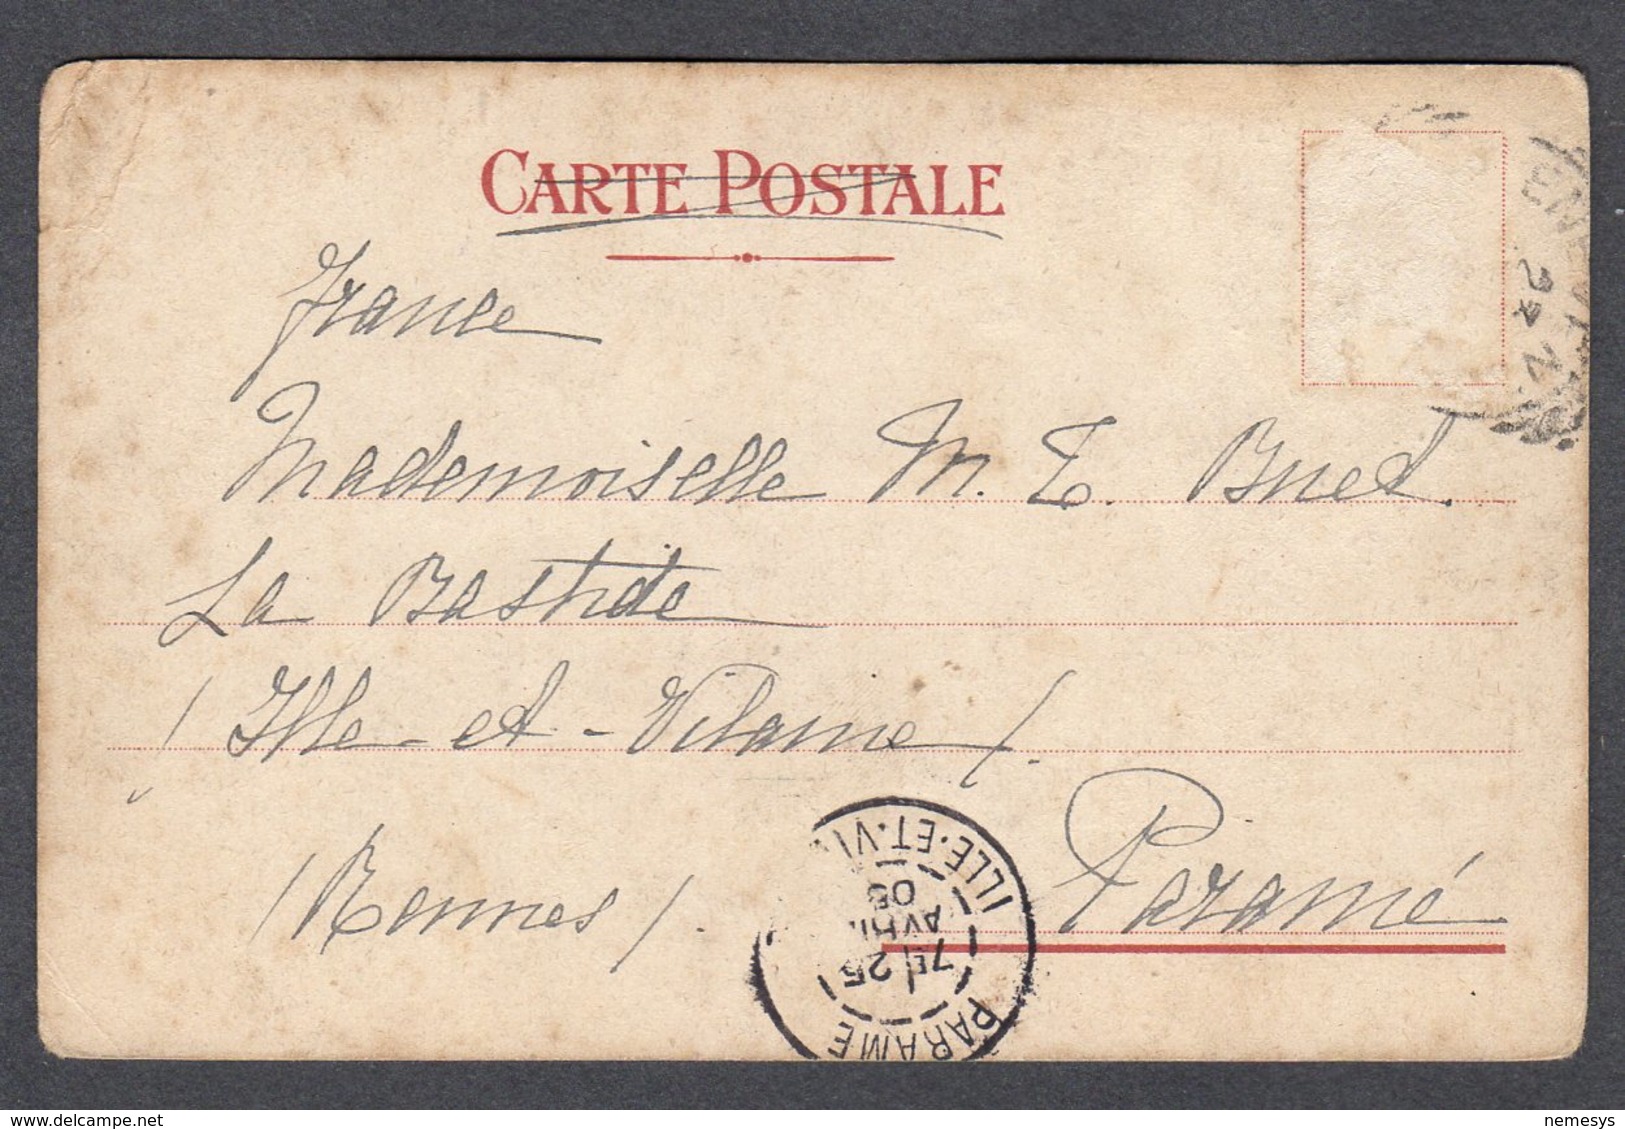 CARTE POSTALE
France
Mademoiselle M. T. Buet.
La Bastide
/ Ille-et-Vilaine /.
/ Rennes /.
Paramé
PARAMÉ
7E 25
AVRIL
05
ILLE-ET-VI
nemesys
delcampe.net